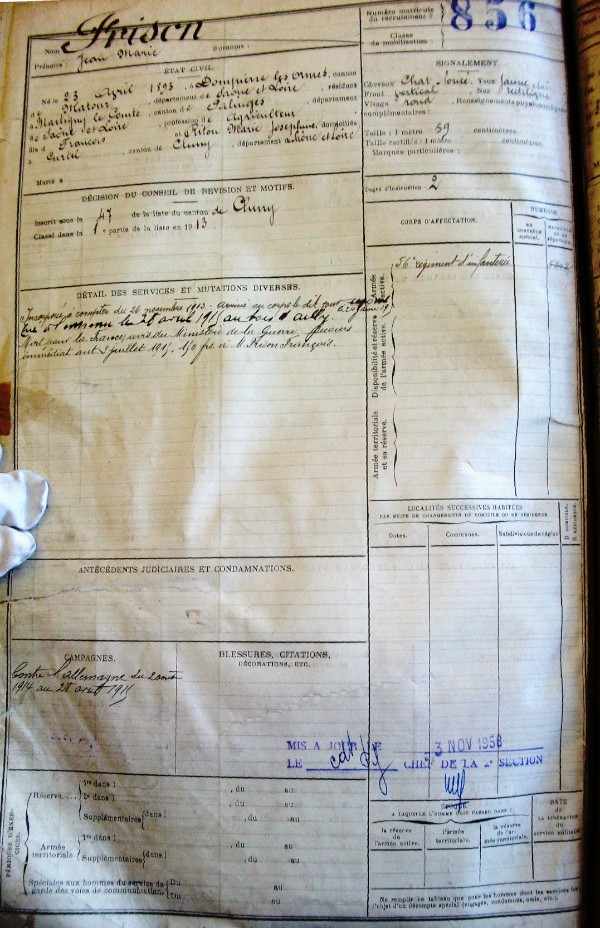 Nom : Frison
Prénoms : Jean Marie
Surnoms :
Numéro matricule du recrutement :
856
Classe de mobilisation :
ÉTAT CIVIL.
Né le 23 Avril 1893, à Dompierre les Ormes, canton
de Matour, département de Saône et Loire, résidant
à Martigny le Comte, canton de Palinges, département
de Saône et Loire, profession de Agriculteur
fils de François et de Marie Josephine, domiciliés
à canton de Cluny, département Saône et Loire
Marié à
SIGNALEMENT
Cheveux Chat. foncé. Yeux jaune
Front vertical Nez rectiligne
Visage rond. Renseignements physionomiques
complémentaires :
Taille : 1 mètre 59 centimètres.
Taille rectifiée : 1 mètre centimètres.
Marques particulières :
Degré d'instruction : 2
DÉCISION DU CONSEIL DE RÉVISION ET MOTIFS.
Inscrit sous le n° 47 de la liste du canton de Cluny
Classé dans la 1e partie de la liste en 1913.
CORPS D'AFFECTATION.
NUMÉROS
au contrôle spécial.
Armée active.
56e régiment d'infanterie
Disponibilité et réserve de l'armée active.
Armée territoriale et sa réserve.
DÉTAIL DES SERVICES ET MUTATIONS DIVERSES.
Incorporé à compter du 26 novembre 1913. Arrivé au corps le dit jour,
Tué à l'ennemi le 28 avril 1915 au bois d'ailly.
Mort pour la France, avis du Ministère de la Guerre, Secours
immédiat aut. 2 juillet 1915, 150 frs. à M. Frison François.
LOCALITÉS SUCCESSIVES HABITÉES
PAR SUITE DE CHANGEMENTS DE DOMICILE OU DE RÉSIDENCE
Dates.
Communes.
Subdivisions de région
D. domicile.
R. résidence.
ANTÉCÉDENTS JUDICIAIRES ET CONDAMNATIONS.
CAMPAGNES.
Contre l'Allemagne du 2 août
1914 au 28 avril 1915
BLESSURES, CITATIONS,
DÉCORATIONS, ETC.
MIS A JOUR LE 3 NOV 1958
LE CHEF DE LA 2e SECTION
PÉRIODES D'EXERCICES.
Réserve
1re dans l , du au
2e dans l , du au
Supplémentaires dans l , du au
Armée territoriale
1re dans l , du au
Supplémentaires dans l , du au
Spéciales aux hommes du service de garde des voies de communication
Du au
Du au
ÉPOQUE
A LAQUELLE L'HOMME DOIT PASSER DANS :
la réserve de l'armée active.
l'armée territoriale.
la réserve de l'armée territoriale.
DATE de LA LIBÉRATION du service militaire
Ne remplir ce tableau que pour les hommes dont les services font
l'objet d'un décompte spécial (engagés, condamnés, omis, etc.).